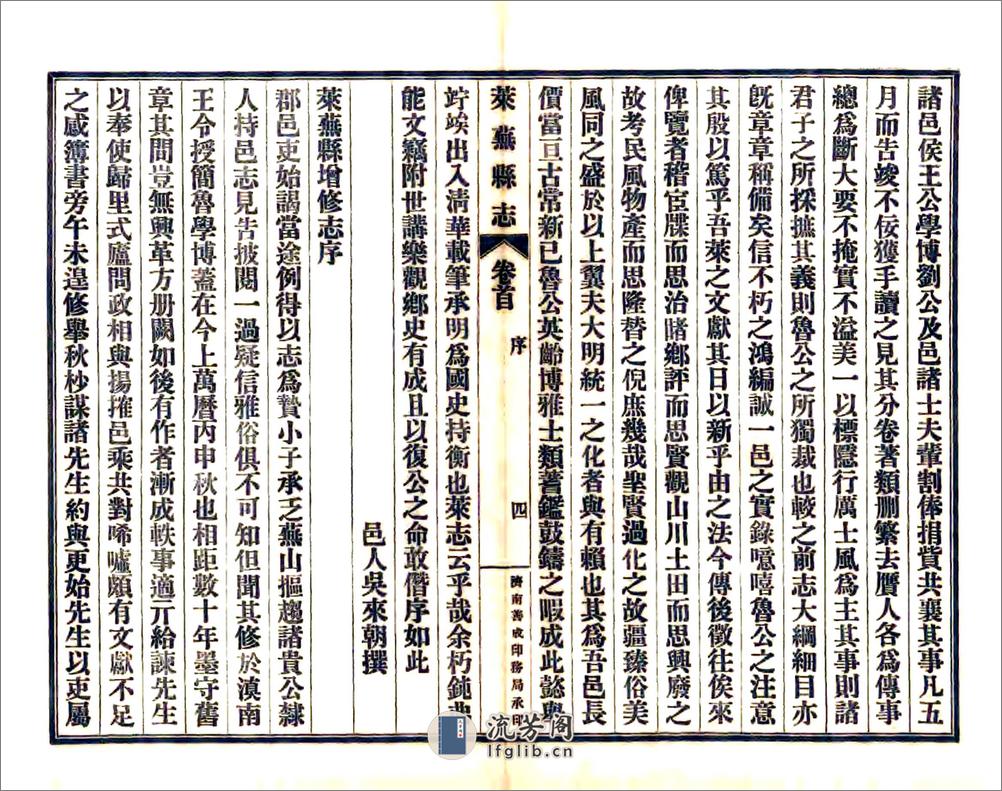 諸邑侯王公學博劉公及邑諸士夫輩割俸捐貲共襄其事凡五
月而告竣不佞獲手讀之見其分卷著類刪繁去贋人各爲傳事
總爲斷大要不掩實不溢美一以標隱行厲士風爲主其事則諸
君子之所採摭其義則魯公之所獨裁也較之前志大綱細目亦
旣章章稱備矣信不朽之鴻編誠一邑之實錄噫嘻魯公之注意
其殷以篤乎吾萊之文獻其日以新乎由之法今傳後徵往俟來
俾覽者稽宦牒而思治睹鄉評而思賢觀山川土田而思興廢之
故考民風物產而思隆替之倪庶幾哉聖賢過化之故疆臻俗美
風同之盛於以上翼夫大明統一之化者與有賴也其爲吾邑長
價當亘古常新已魯公英齡博雅士類蓍鑑鼓鑄之暇成此懿舉
萊蕪縣志 卷首 序 四 濟南善成印務局承印
竚竢出入淸華載筆承明爲國史持衡也萊志云乎哉余朽鈍
能文竊附世講樂觀鄉史有成且以復公之命敢僭序如此
邑人吳來朝撰
萊蕪縣增修志序
郡邑吏始謁當途例得以志爲贄小子承乏蕪山摳趨諸貴公隸
人持邑志見告披閱一過疑信雅俗俱不可知但聞其修於滇南
王令授簡魯學博蓋在今上萬曆丙申秋也相距數十年墨守舊
章其間豈無興革方册闕如後有作者漸成軼事適亓給諫先生
以奉使歸里式廬問政相與揚搉邑乘共對唏噓頗有文獻不足
之感簿書旁午未遑修舉秋杪謀諸先生約與更始先生以吏屬
流芳阁
lfglib.cn